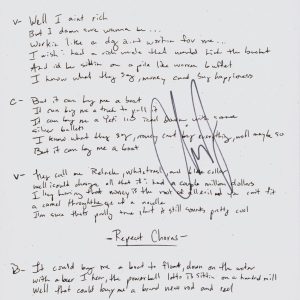 V- Well I aint rich
But I damn sure wanna be...
Workin like a dog aint workin for me...
I wish i had a rich uncle that would kick the bucket
And id be sittin on a pile like warren buffet
I know what they say, money cant buy happiness
C- But it can buy me a boat
It can buy me a truck to pull it
It can buy me a Yeti 110 iced down with some
silver bullets
I know what they say, money cant buy everything, well maybe so
But it can buy me a boat
V- They call me Redneck, whitetrash, and blue collar
well i could change all that if i had a couple million dollars
I keep hearing that money is the root of all evil and you cant fit
a camel through the eye of a needle
Im sure thats prolly true, but it still sounds pretty cool
- Repeat Chorus -
B- It could buy me a boat to float down on the water
with a beer I hear, the powerball lotto is sittin on a hundred mill
Well that could buy me a brand new rod and reel